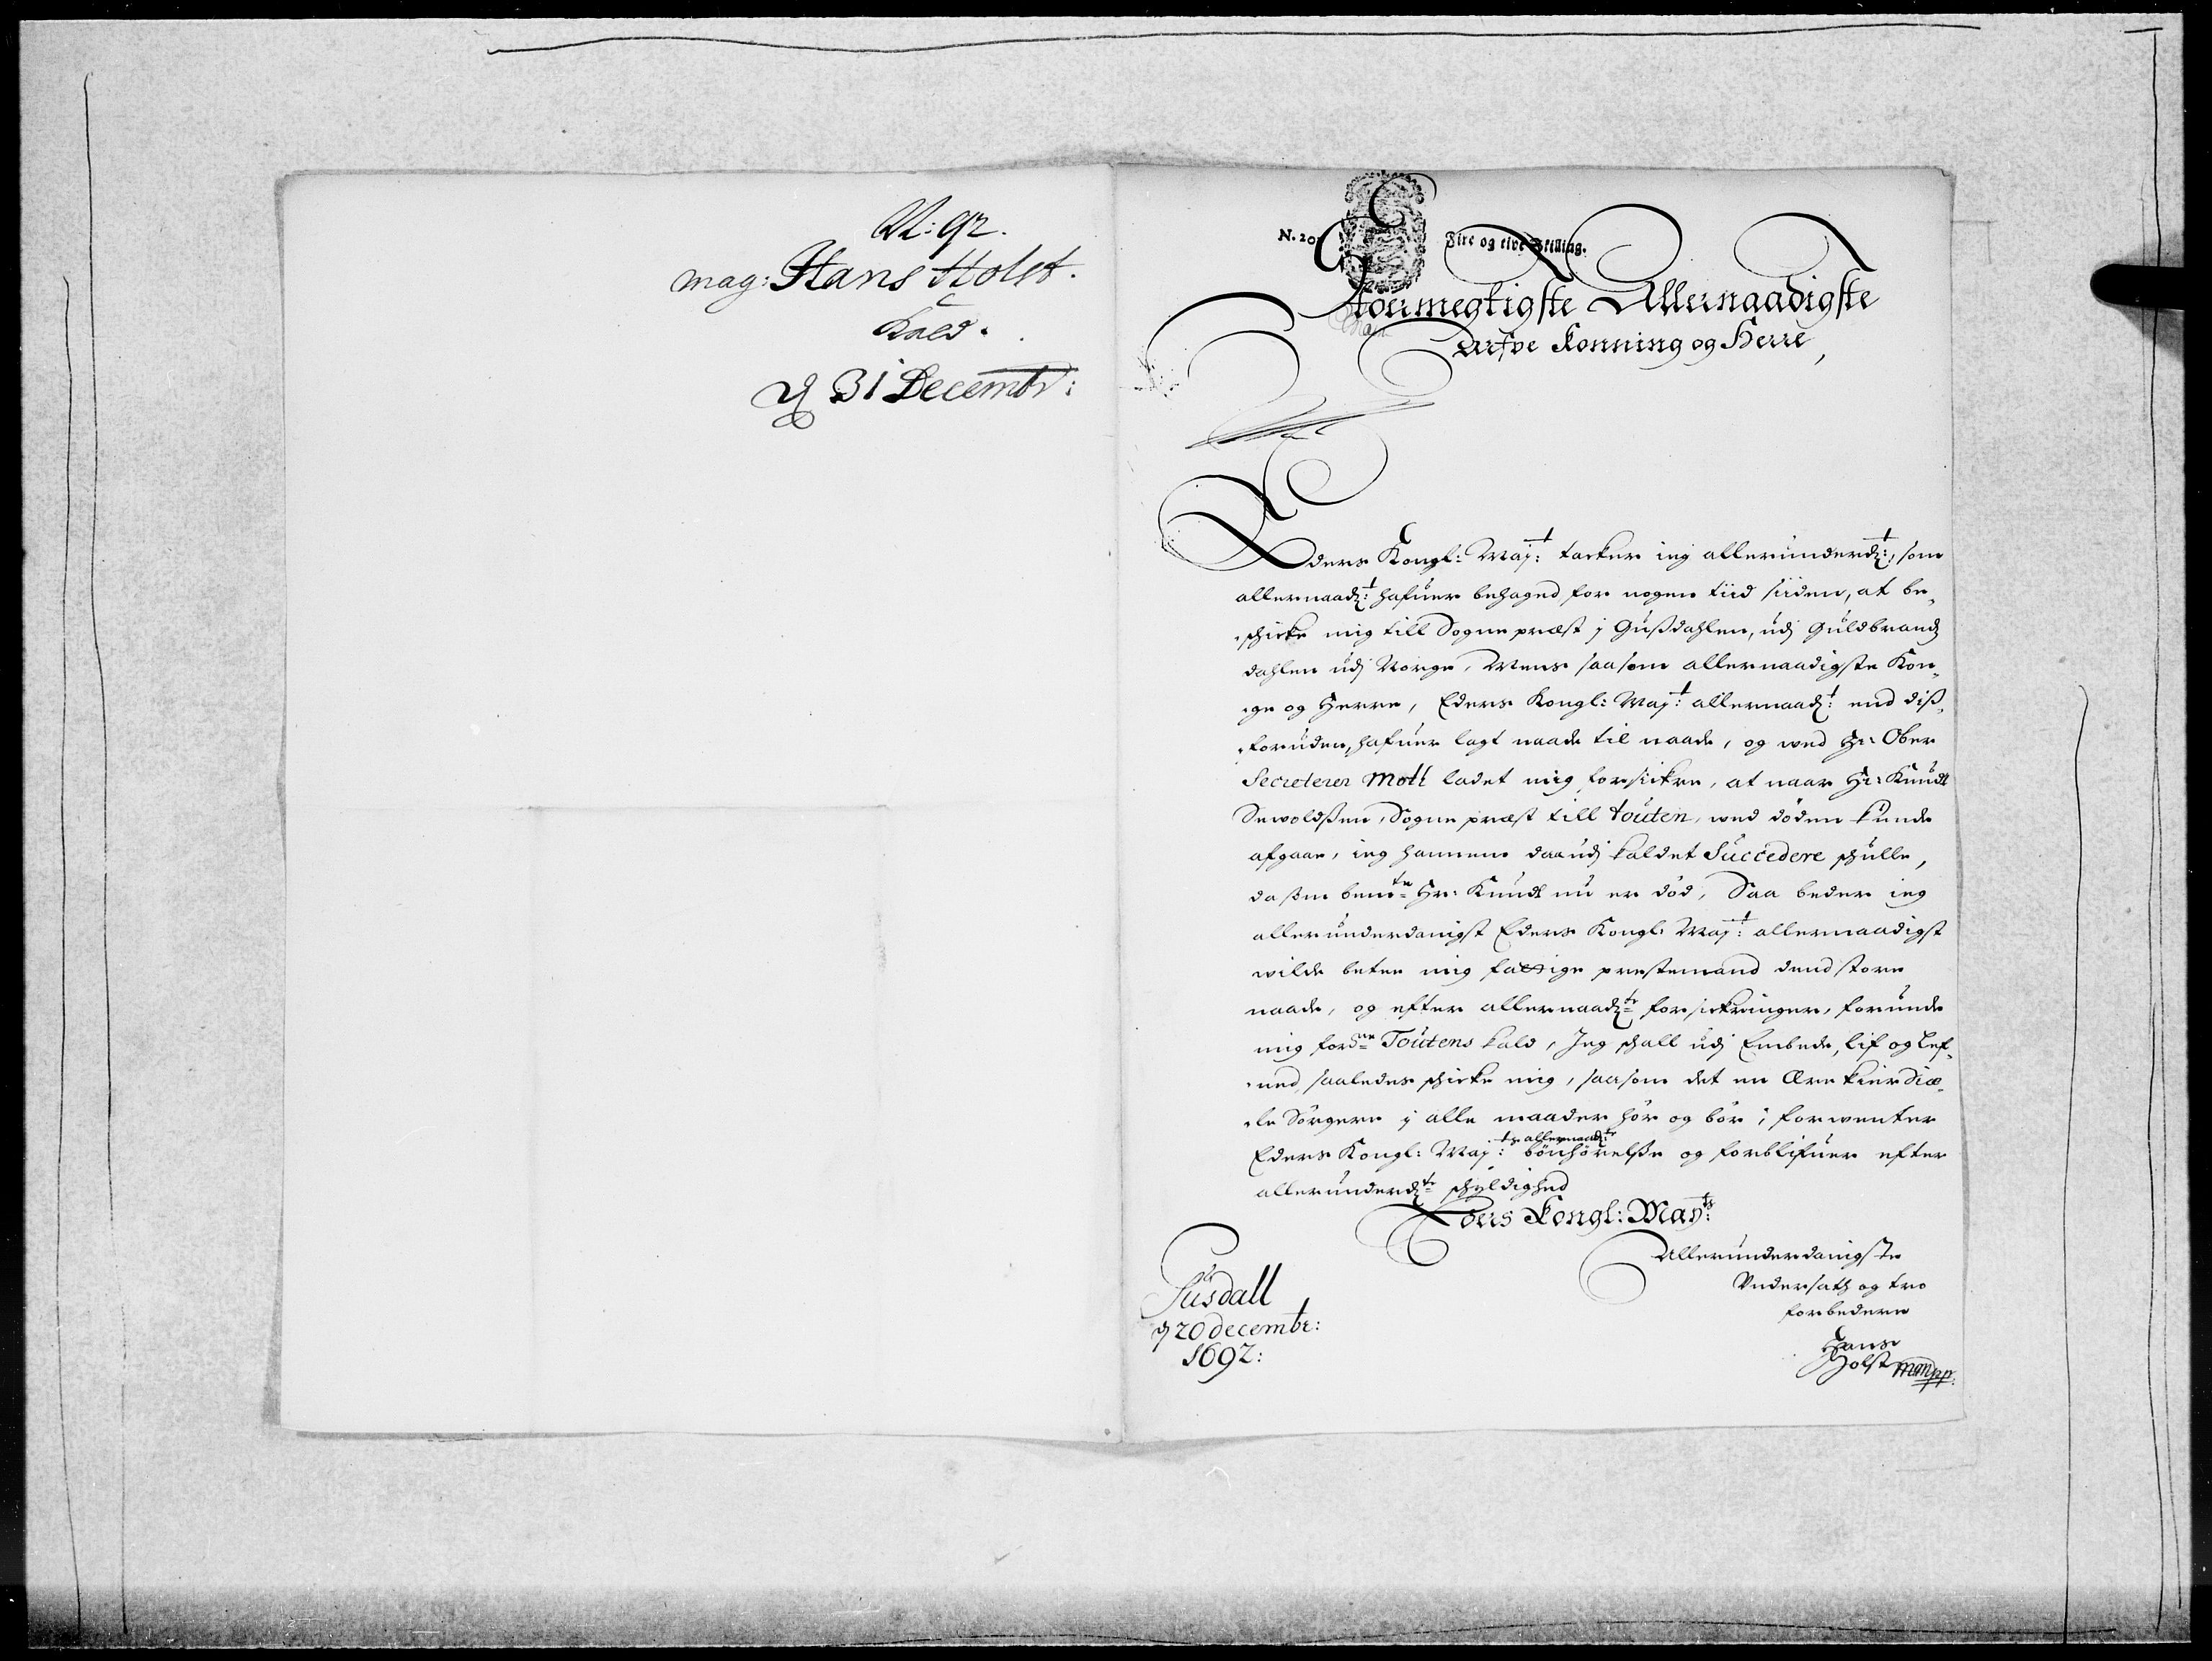 N: 92.
mag: Hans Holst.
Kald.
d 31 Decembr:
N. 20
Fire og tive Skilling.
Stormegtigste Allernaadigste
Arfve Konning og Herre,
Eders Kongl: Maj:t tacker ieg allerunderd:t, som
allernaad:t hafuer behaged for nogen tiid siiden, at be-
schicke mig till Sogne præst j Gusdahlen, udj Guldbrands
dahlen udj Norge, Mens saasom allernaadigste Kon-
ge og Herre, Eders Kongl: Maj:t allernaad:t end diss-
foruden, hafuer lagt naade til naade, og wed Hr: Ober
Secreterer Moth ladet mig forsickre, at naar Hr: Knudt
Sewoldssen, Sogne præst till touten, wed döden kunde
afgaae, ieg hannem da udj kaldet Succedere schulle,
da som bemte Hr: Knudt nu er död, Saa beder ieg
allerunderdanigst Eders Kongl: Maj:t allernaadigst
wilde betee mig fattige prestemand dend store
naade, og efter allernaadte forsickringer, forunde
mig fordne Toutens kald, Jeg schall udj Embede, lif og lef-
ned, saaledes schicke mig, saasom det en Ære kier Siæ-
le Sörgere j alle maader hör og bör; forwenter
Eders Kongl: Maj:ts allernaad:te bönhörelsse og forblifuer efter
allerunderdte schyldighed
Eders Kongl: May:ts
Allerunderdanigste
Vndersath og tro
forbedere
Hans
Holst mpp:
Gusdall
d 20 decembr:
1692: